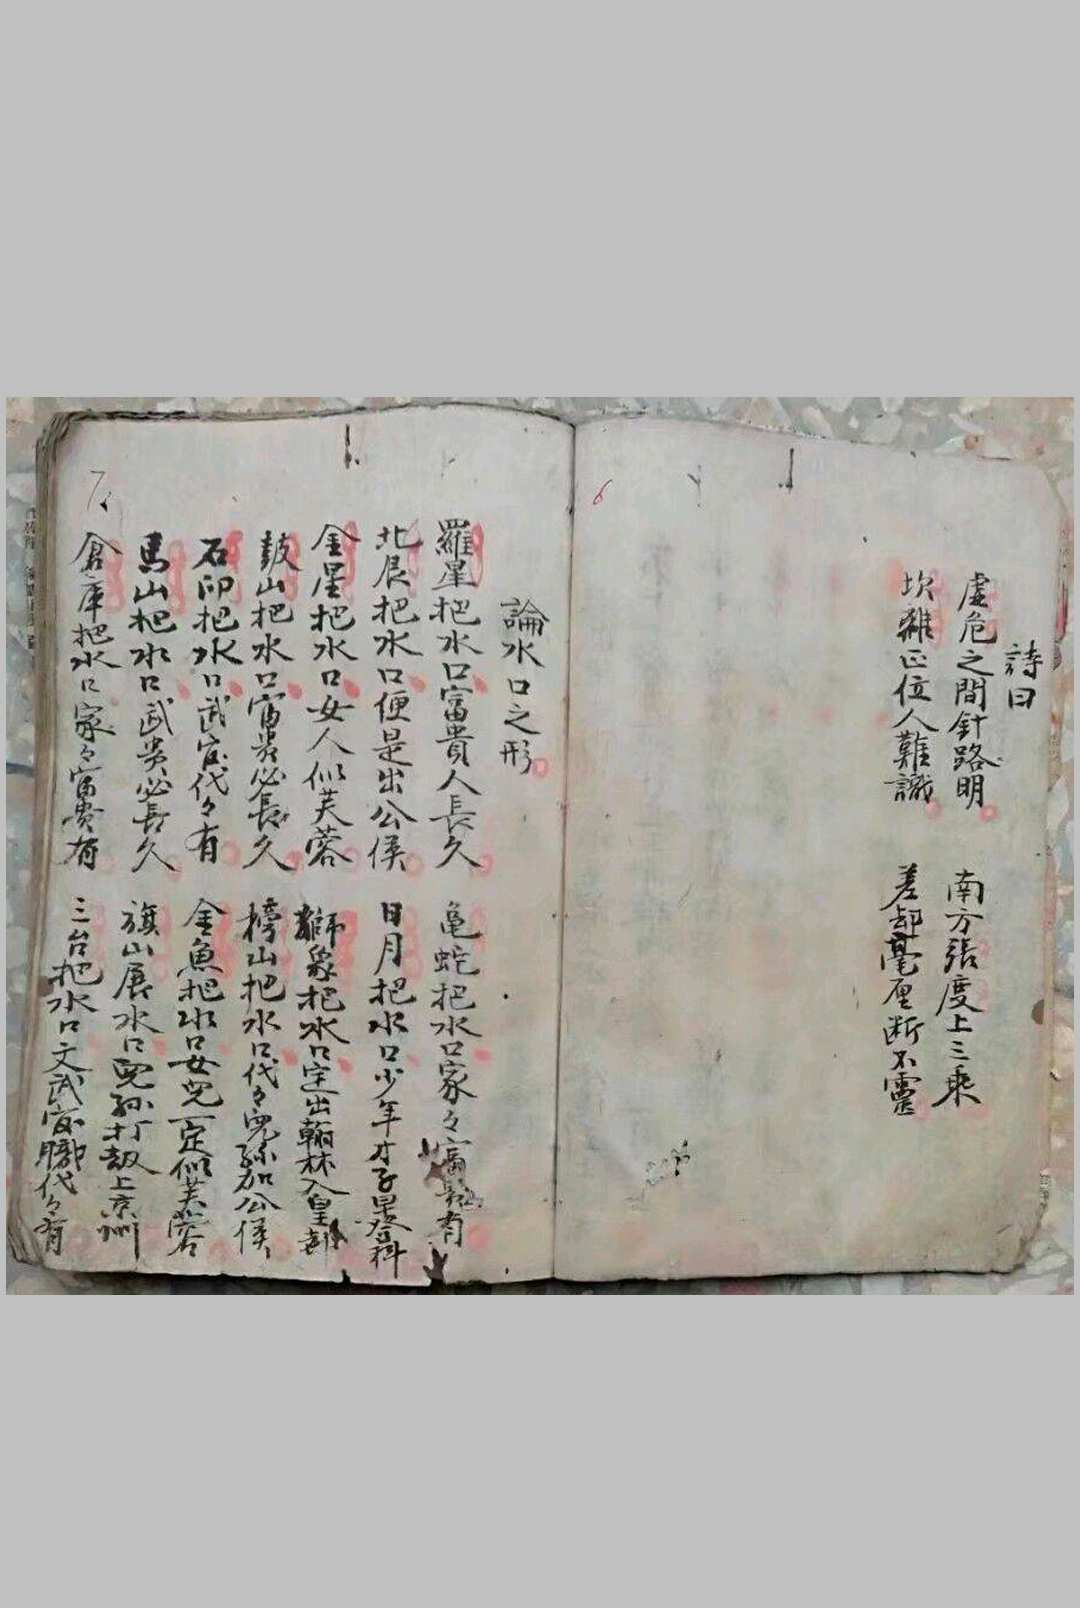 6
詩曰
虛危之間針路明 南方張度上三乘
坎離正位人難識 差却毫厘断不靈
7
論水口之形
羅星把水口富貴人長久 亀蛇把水口家々富貴有
北辰把水口便是出公侯 日月把水口少年才子早登科
金星把水口女人似芙蓉 獅象把水口定出翰林入皇都
鼓山把水口富貴必長久 榜山把水口代々兒孫加公侯
石印把水口武官代々有 金魚把水口女兒一定似芙蓉
馬山把水口武貴必長久 旗山展水口兒孫打劫上京州
倉庫把水口家々富貴有 三台把水口文武官職代々有